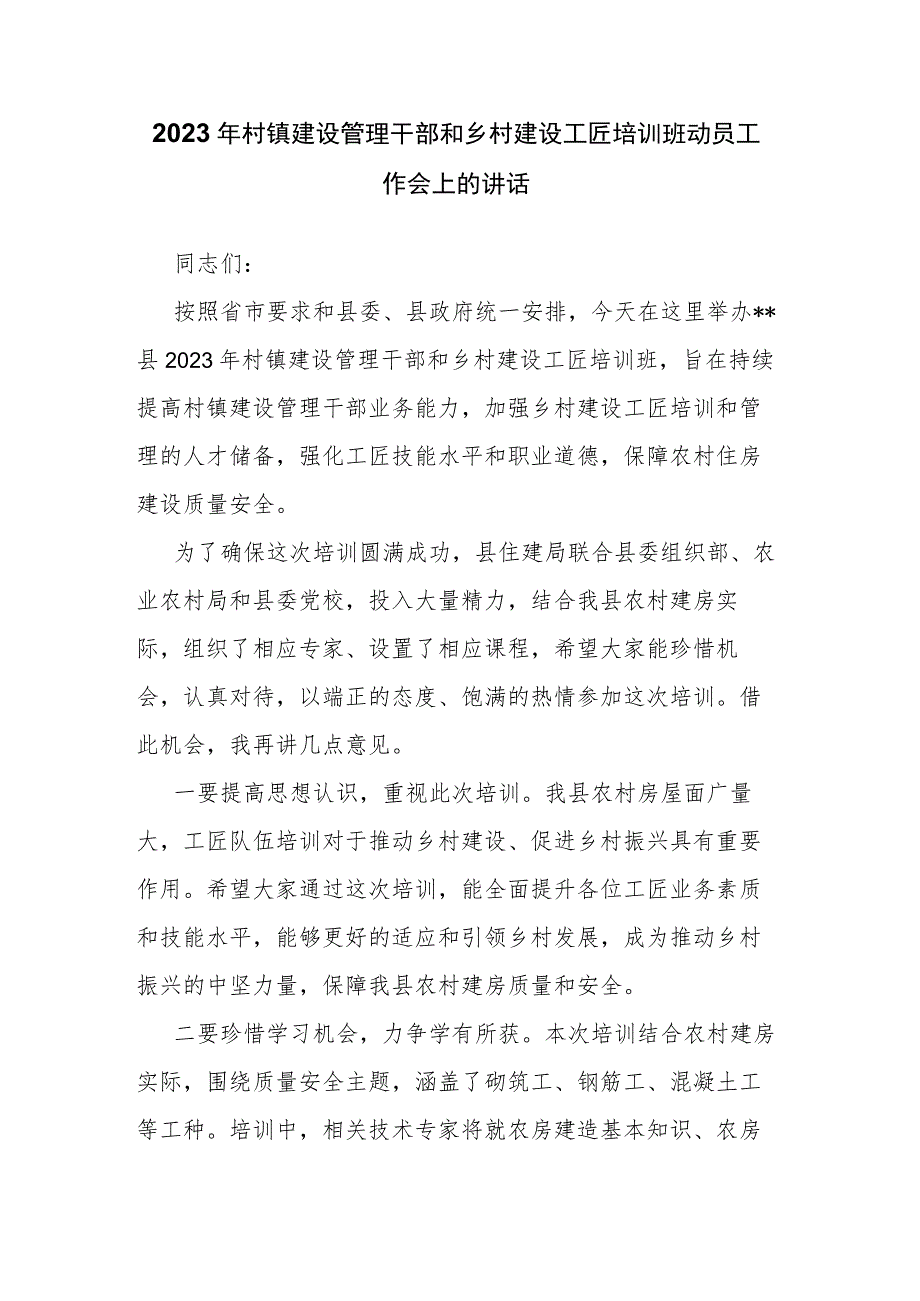 2023 年村镇建设管理干部和乡村建设工匠培训班动员工
作会上的讲话
同志们：
按照省市要求和县委、县政府统一安排，今天在这里举办**
县 2023 年村镇建设管理干部和乡村建设工匠培训班，旨在持续
提高村镇建设管理干部业务能力，加强乡村建设工匠培训和管
理的人才储备，强化工匠技能水平和职业道德，保障农村住房
建设质量安全。
为了确保这次培训圆满成功，县住建局联合县委组织部、农
业农村局和县委党校，投入大量精力，结合我县农村建房实
际，组织了相应专家、设置了相应课程，希望大家能珍惜机
会，认真对待，以端正的态度、饱满的热情参加这次培训。借
此机会，我再讲几点意见。
一要提高思想认识，重视此次培训。我县农村房屋面广量
大，工匠队伍培训对于推动乡村建设、促进乡村振兴具有重要
作用。希望大家通过这次培训，能全面提升各位工匠业务素质
和技能水平，能够更好的适应和引领乡村发展，成为推动乡村
振兴的中坚力量，保障我县农村建房质量和安全。
二要珍惜学习机会，力争学有所获。本次培训结合农村建房
实际，围绕质量安全主题，涵盖了砌筑工、钢筋工、混凝土工
等工种。培训中，相关技术专家将就农房建造基本知识、农房